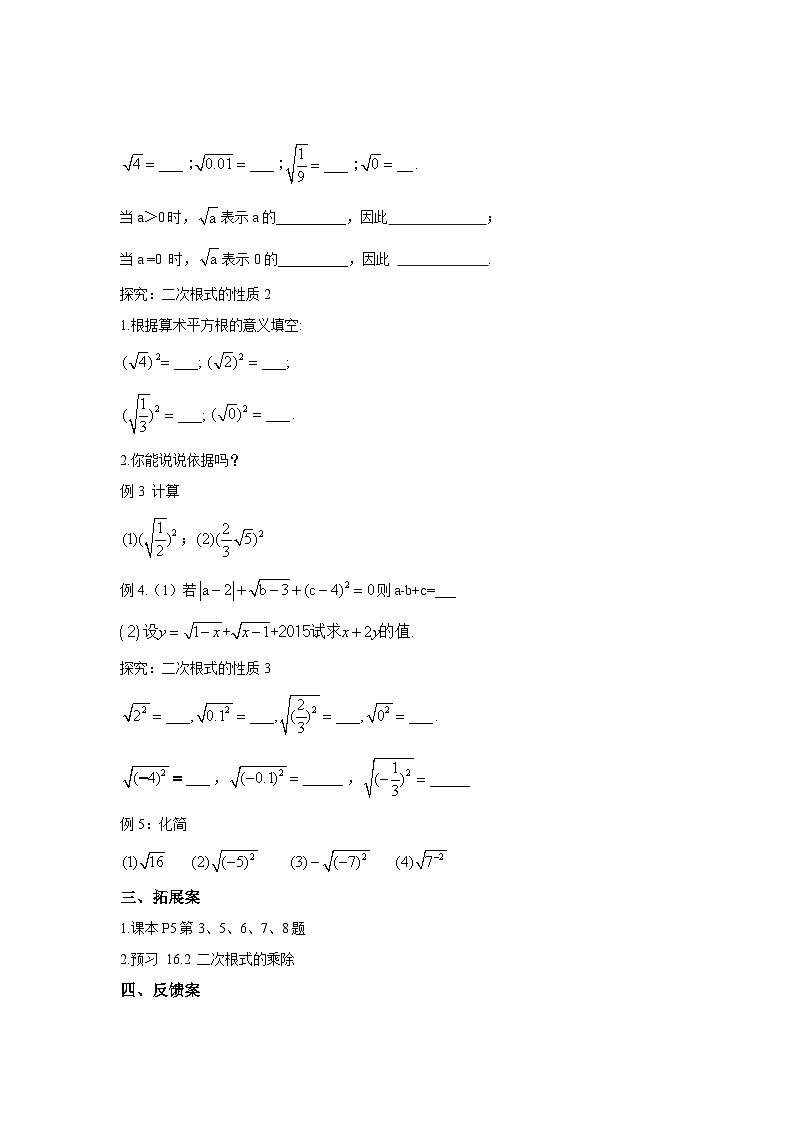 √4 = ___ ;√0.01 = ___ ;√(1/9) = ___ ;√0 = __ .
当a＞0时，√a表示a的__________，因此______________；
当a =0 时，√a表示0的__________，因此 _____________.
探究：二次根式的性质2
1.根据算术平方根的意义填空:
(√4)²= ___; (√2)² = ___;
(√(1/3))² = ___; (√0)² = ___ .
2.你能说说依据吗？
例3 计算
(1)(√(1/2))²；(2)(2/3 √5)²
例4.（1）若|a－2|+√(b－3)+(c－4)² = 0则a-b+c=___
( 2) 设y = √(1−x)+√(x−1)+2015试求x+2y的值.
探究：二次根式的性质3
√2² = ___,√0.1² = ___,√(2/3)² = ___,√0² = ___ .
√(−4)² = ___，√(−0.1)² = _____，√(−1/3)² = _____
例5：化简
(1)√16 (2)√(−5)² (3)−√(−7)² (4)√7⁻²
三、拓展案
1.课本P5第3、5、6、7、8题
2.预习 16.2 二次根式的乘除
四、反馈案